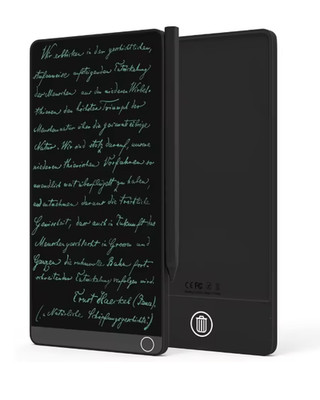 Wir erblicken in den geschichtlichen,
stufenweise aufsteigenden Entwickelung
der Menschen aus den niederen Wirbel-
thieren den höchsten Triumph der
Menschennatur über die gesammte übrige
Natur. Wir sind stolz darauf, unsere
niederen thierischen Vorfahren so
unendlich weit überflügelt zu haben,
und entnehmen daraus die tröstliche
Gewissheit, dass auch in Zukunft das
Menschengeschlecht im Grossen und
Ganzen die ruhmvolle Bahn fort-
schreitender Entwickelung verfolgen wird.
Ernst Haeckel (Jena).
(Natürliche Schöpfungsgeschichte)
CE FC